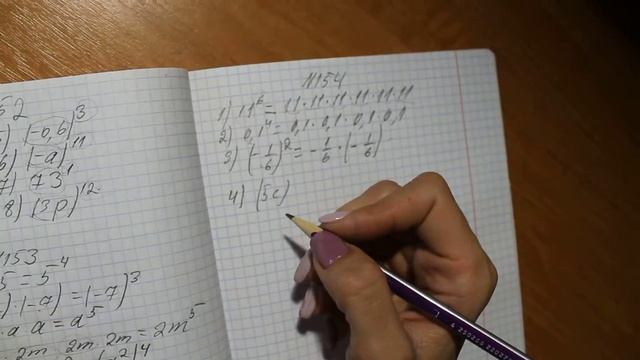 52
(-0,6)³
6) (-a)¹¹
7) 73¹
8) (3p)¹²
№153
(-7) = (-7)³
a = a⁵
2m · 2m = 2m⁵
№154
1) 11⁶ = 11·11·11·11·11·11
2) 0,1⁴ = 0,1·0,1·0,1·0,1
3) (-1/6)² = -1/6 · (-1/6)
4) (5c)